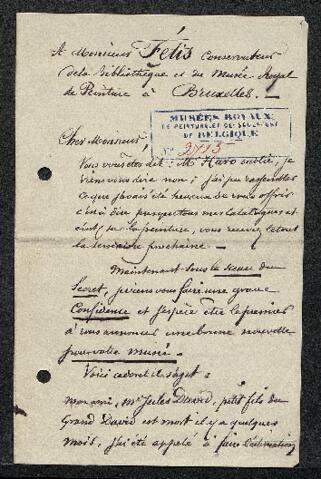 A Monsieur Fétis Conservateur
de la bibliothèque et du Musée Royal
de Peinture à Bruxelles. —
MUSÉES ROYAUX
DE PEINTURE ET DE SCULPTURE
DE BELGIQUE
No 2115
Cher Monsieur!
Vous vous êtes dit: Mr Haro oublie, je
viens vous dire non; j'ai pu rassembler
ce que j'avais été heureux de vous offrir
c'est à dire prospectus mes Catalogues et
écrits, sur la peinture, vous recevrez le tout
la semaine prochaine. —
Maintenant sous le sceau du
Secret, je viens vous faire une grave
Confidence et j'espère être le premier
à vous annoncer une bonne nouvelle
pour votre musée. —
Voici ce dont il s'agit:
mon ami, Mr Jules David, petit fils du
Grand David est mort il y a quelques
mois, j'ai été appelé à faire l'estimation